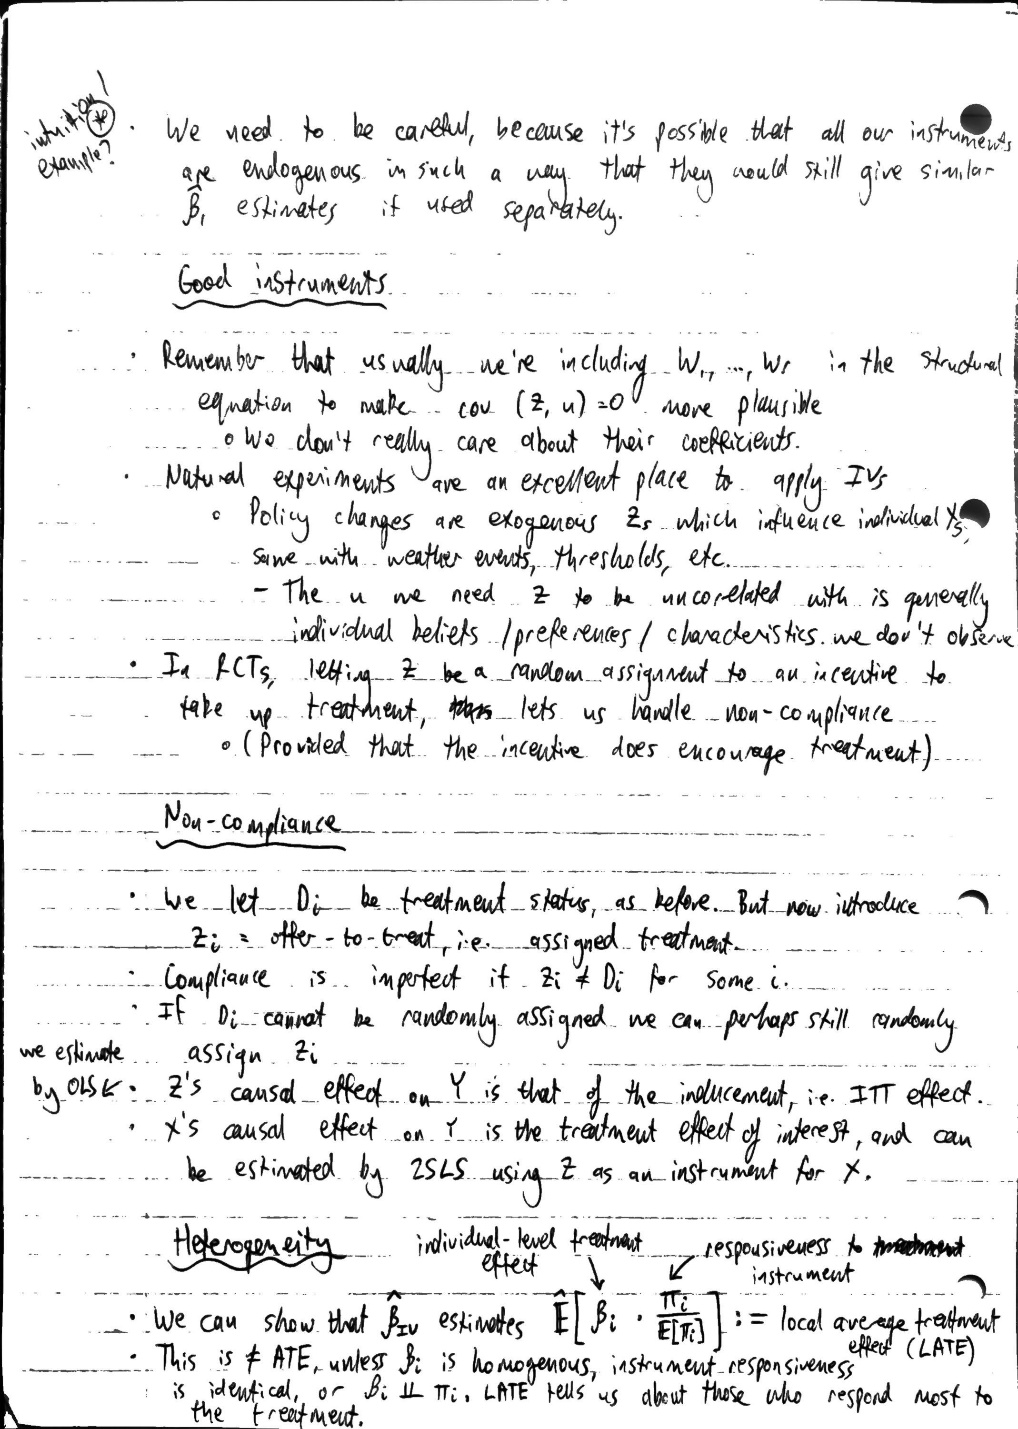 intuition/
example?
• We need to be careful, because it's possible that all our instruments
are endogenous in such a way that they would still give similar
β̂₁ estimates if used separately.
Good instruments
• Remember that usually we're including W₁, ..., Wr in the structural
equation to make cov (Z, u) = 0 more plausible
o We don't really care about their coefficients.
• Natural experiments are an excellent place to apply IVs
o Policy changes are exogenous Zs which influence individual Xs;
same with weather events, thresholds, etc.
- The u we need Z to be uncorelated with is generally
individual beliefs / preferences / characteristics we don't observe
• In RCTs, letting Z be a random assignment to an incentive to
take up treatment, lets us handle non-compliance
o (Provided that the incentive does encourage treatment)
Non-compliance
• We let Di be treatment status, as before. But now introduce
Zi = offer-to-treat, i.e. assigned treatment.
• Compliance is imperfect if Zi ≠ Di for some i.
• If Di cannot be randomly assigned we can perhaps still randomly
assign Zi
we estimate
by OLS ← • Z's causal effect on Y is that of the inducement, i.e. ITT effect.
• X's causal effect on Y is the treatment effect of interest, and can
be estimated by 2SLS using Z as an instrument for X.
Heterogeneity
individual-level treatment
effect
responsiveness to
instrument
• We can show that β̂IV estimates Ê[βi · πi/E[πi]] := local average treatment
effect (LATE)
• This is ≠ ATE, unless βi is homogenous, instrument responsiveness
is identical, or βi ⫫ πi. LATE tells us about those who respond most to
the treatment.